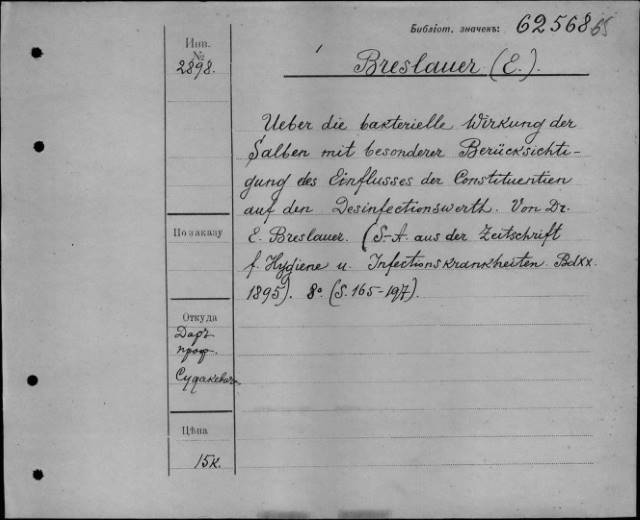 Библіот. значекъ: 62568 65
Инв.
№
2898.
Breslauer (E.).
Ueber die bakterielle Wirkung der
Salben mit besonderer Berücksichti-
gung des Einflusses der Constituentien
auf den Desinfectionswerth. Von Dr.
E. Breslauer. (S.-A. aus der Zeitschrift
f. Hygiene u. Infectionskrankheiten. Bd XX.
1895). 8° (S. 165-197).
По заказу
Откуда
Даръ
проф.
Судакевича
Цѣна
15к.